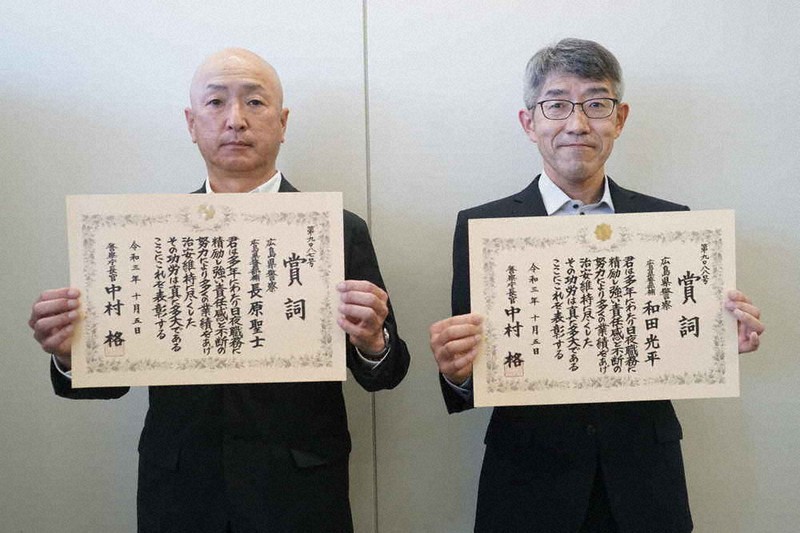 賞詞
第九〇八七号
広島県警察
広島県警部補 長原聖士
君は多年にわたり日夜職務に
精励し強い責任感と不断の
努力により多くの業績をあげ
治安維持に尽くした
その功労は真に多大である
ここにこれを表彰する
令和三年十月五日
警察庁長官 中村格
賞詞
第九〇八六号
広島県警察
広島県警部補 和田光平
君は多年にわたり日夜職務に
精励し強い責任感と不断の
努力により多くの業績をあげ
治安維持に尽くした
その功労は真に多大である
ここにこれを表彰する
令和三年十月五日
警察庁長官 中村格